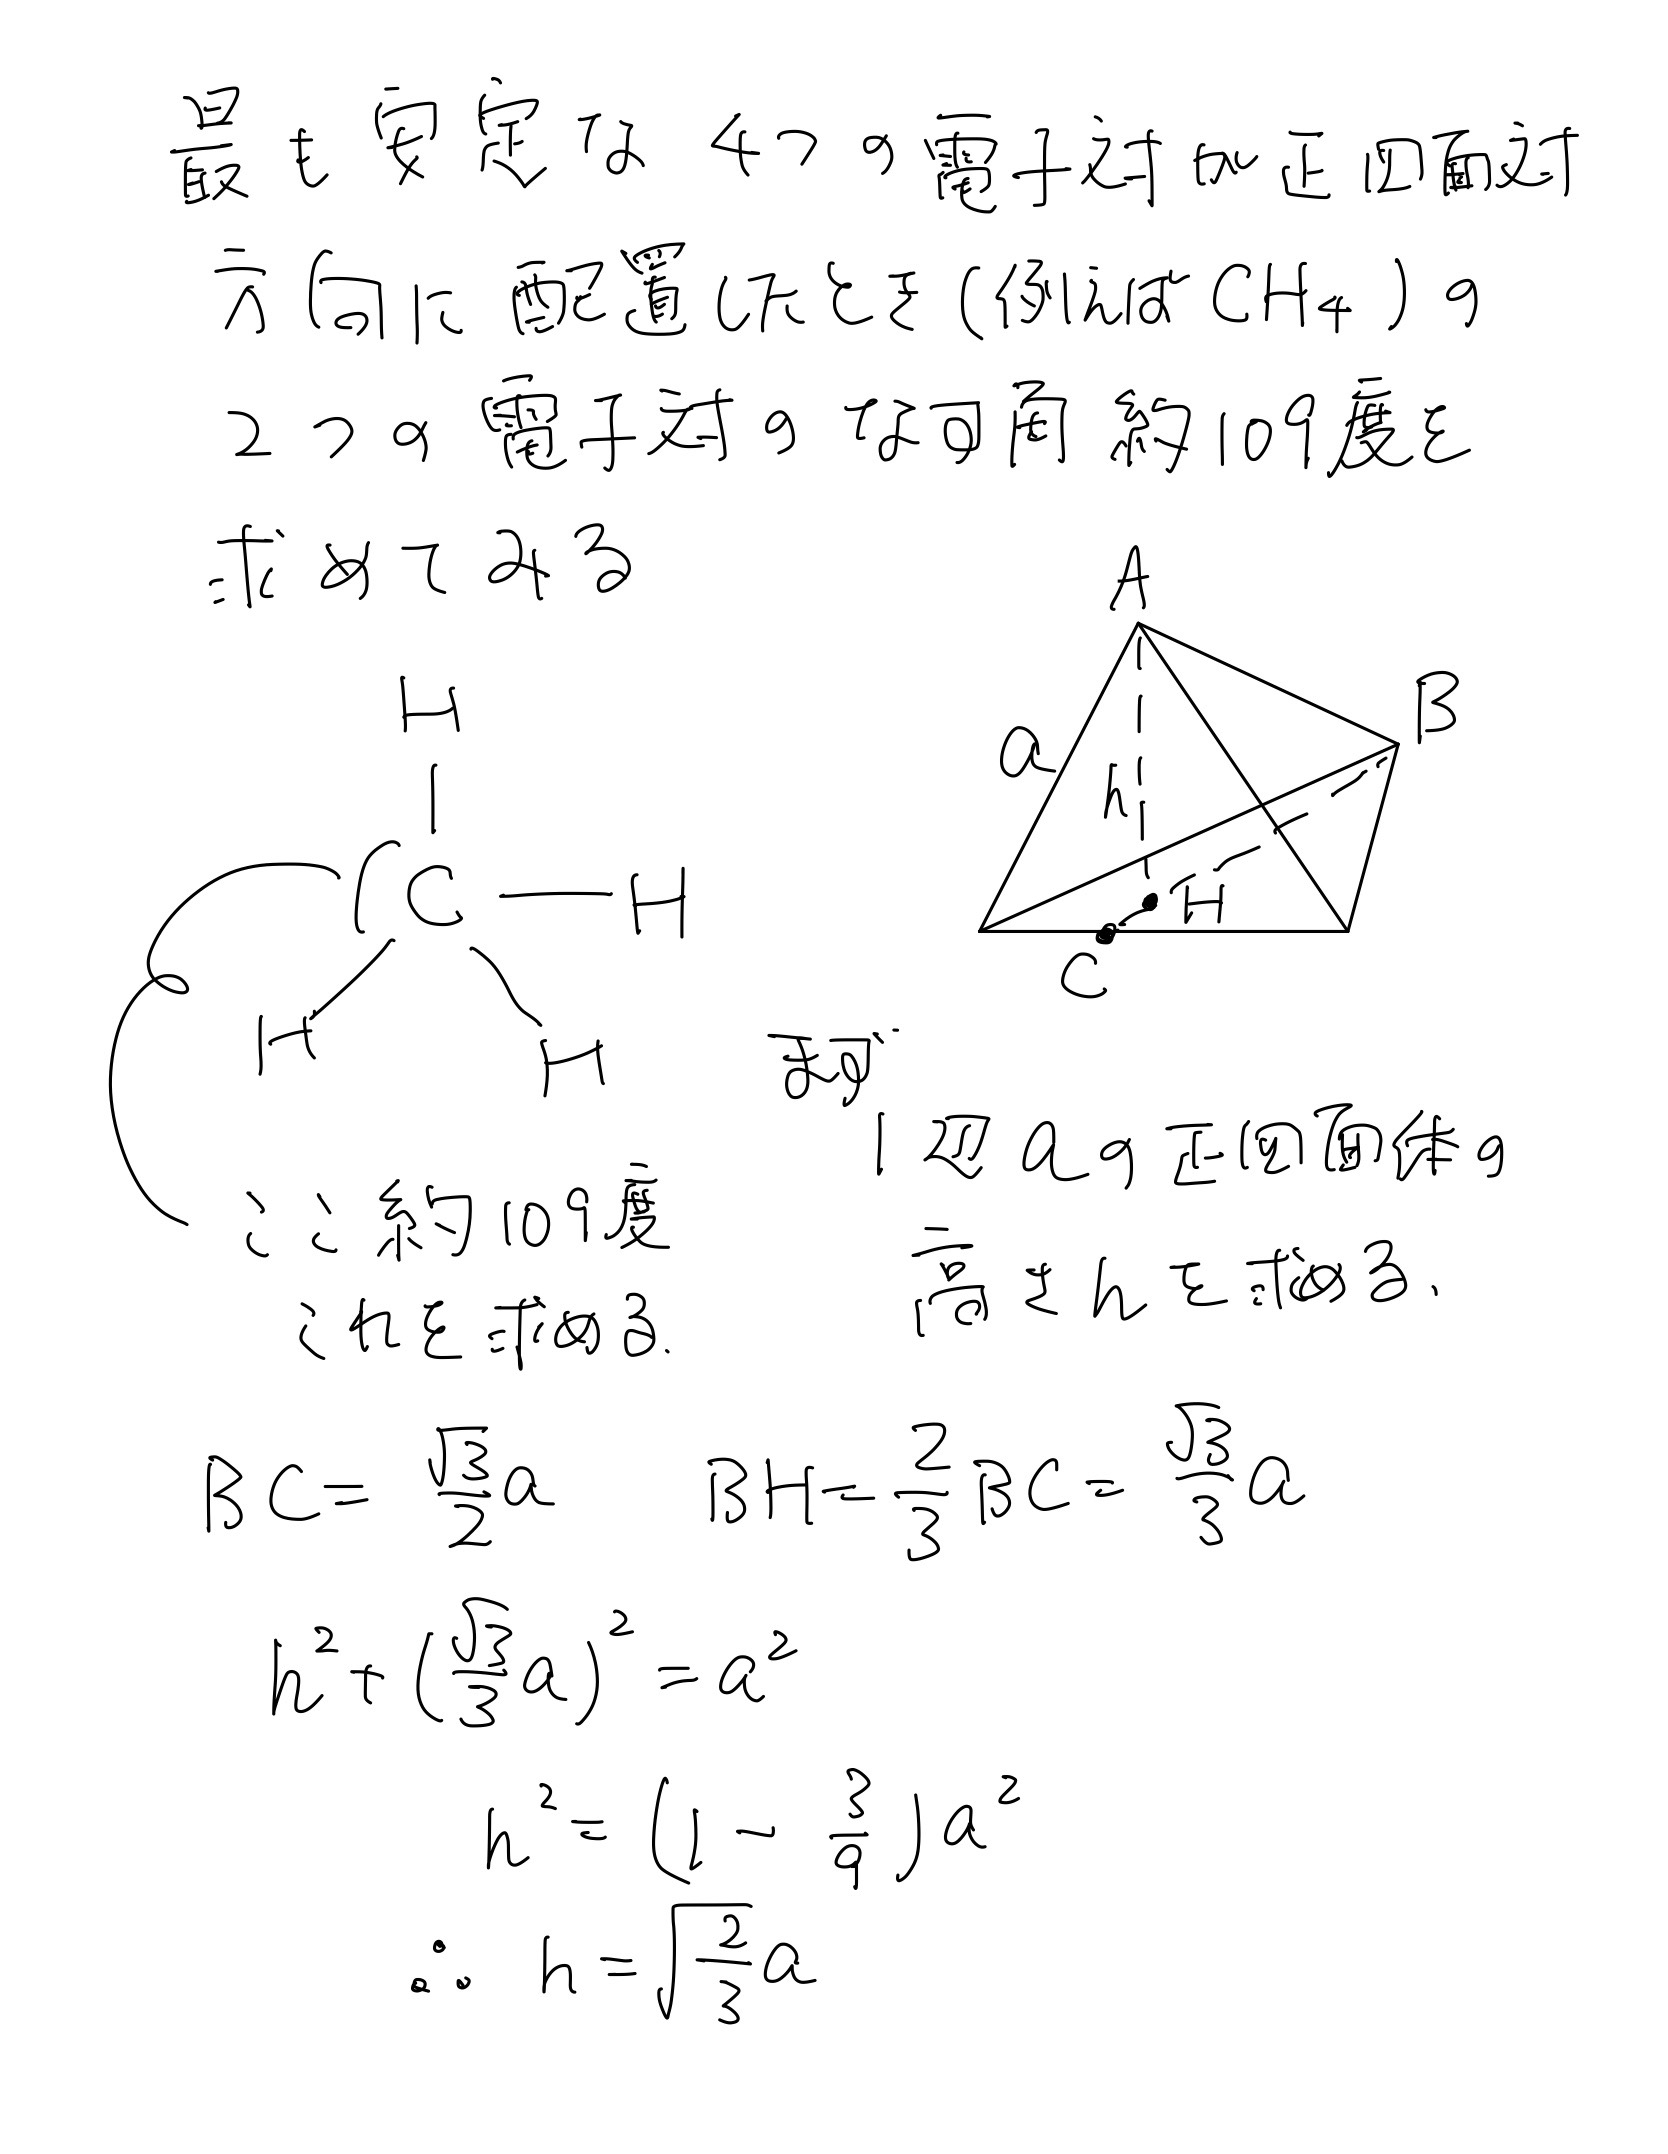 最も安定な4つの電子対が正四面対
方向に配置したとき(例えばCH₄)の
2つの電子対のなす角約109度を
求めてみる
H
C
H
H
H
ここ約109度
これを求める.
A
B
a
h
H
C
まず
1辺aの正四面体の
高さhを求める.
BC = √3/2 a BH = 2/3 BC = √3/3 a
h² + (√3/3 a)² = a²
h² = (1 - 3/9) a²
∴ h = √(2/3) a